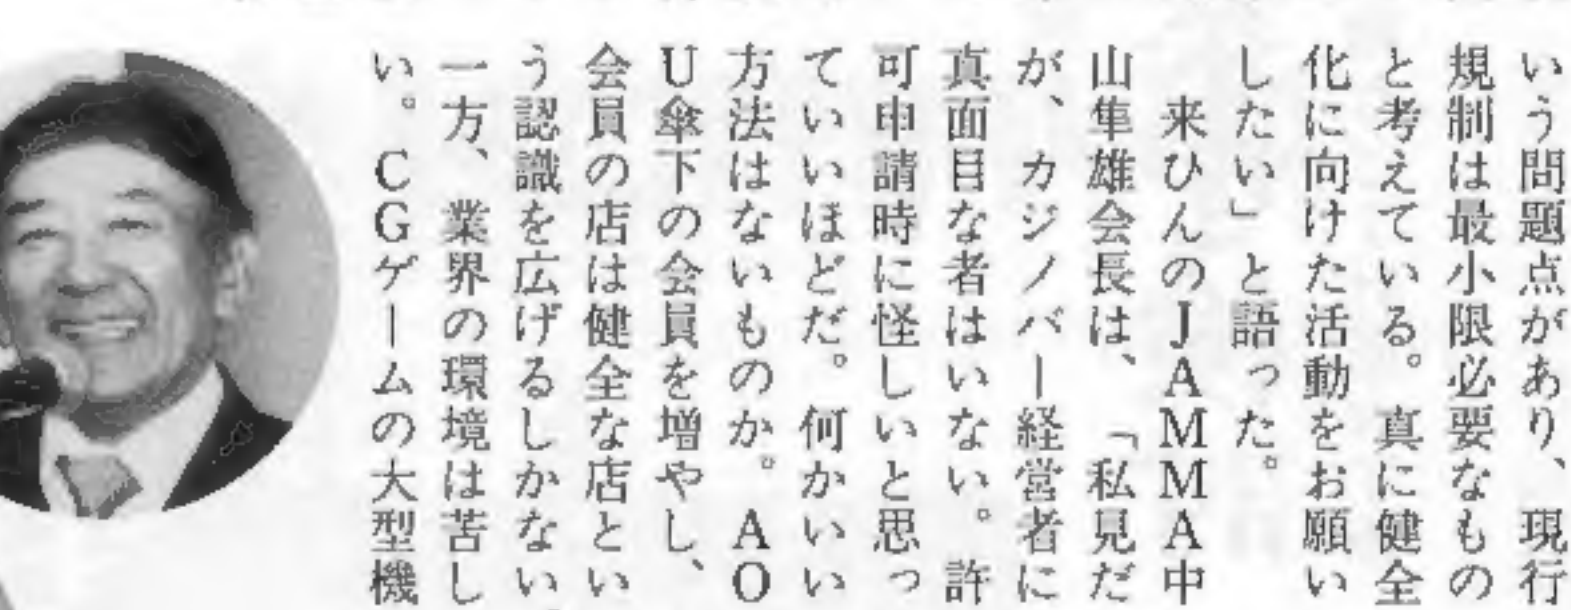 いう問題点があり、現行
規制は最小限必要なもの
と考えている。真に健全
化に向けた活動をお願い
したい」と語った。
来ひんのJAMMA中
山隼雄会長は、「私見だ
が、カジノバー経営者に
真面目な者はいない。許
可申請時に怪しいと思っ
ていいほどだ。何かいい
方法はないものか。AO
U傘下の会員を増やし、
会員の店は健全な店とい
う認識を広げるしかない
一方、業界の環境は苦し
い。CGゲームの大型機